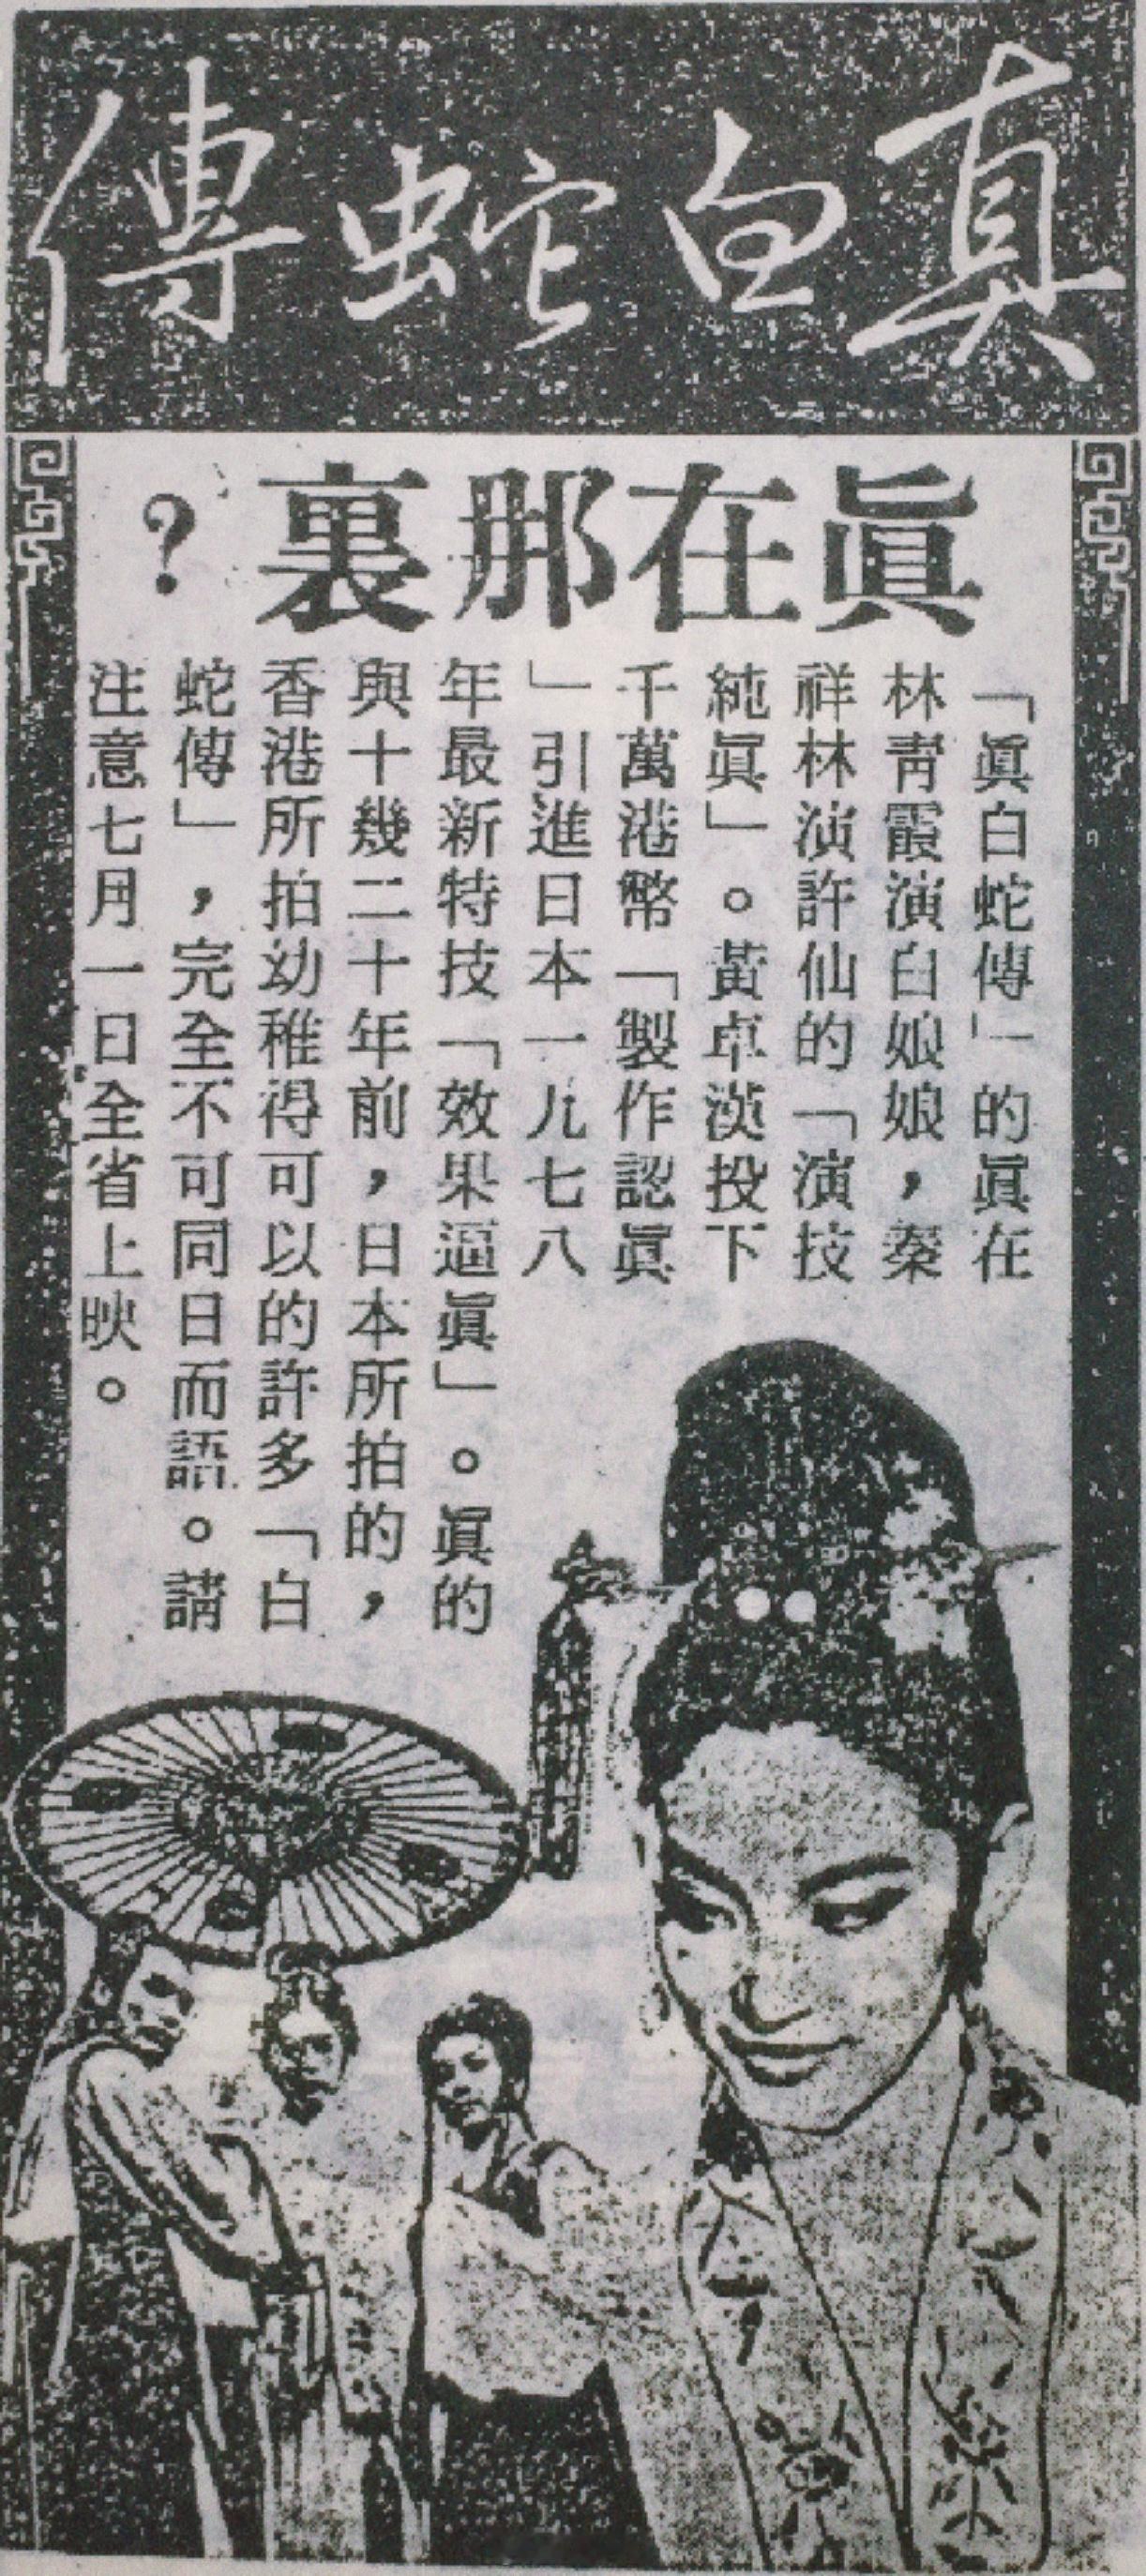 真白蛇傳
眞在那裏？
「眞白蛇傳」的眞在
林靑霞演白娘娘，秦
祥林演許仙的「演技
純眞」。黃卓漢投下
千萬港幣「製作認眞
」引進日本一九七八
年最新特技「效果逼眞」。眞的
與十幾二十年前，日本所拍的，
香港所拍幼稚得可以的許多「白
蛇傳」，完全不可同日而語。請
注意七月一日全省上映。